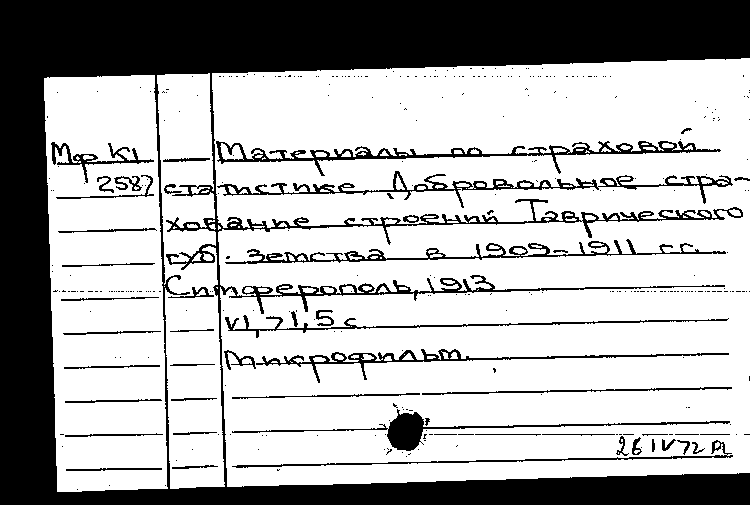 Мф К1 Материалы по страховой
2587 статистике. Добровольное стра-
хование строений Таврического
губ. земства в 1909-1911 г.г.
Симферополь, 1913
VI, 71, 5 с.
микрофильм.
26 IV 72